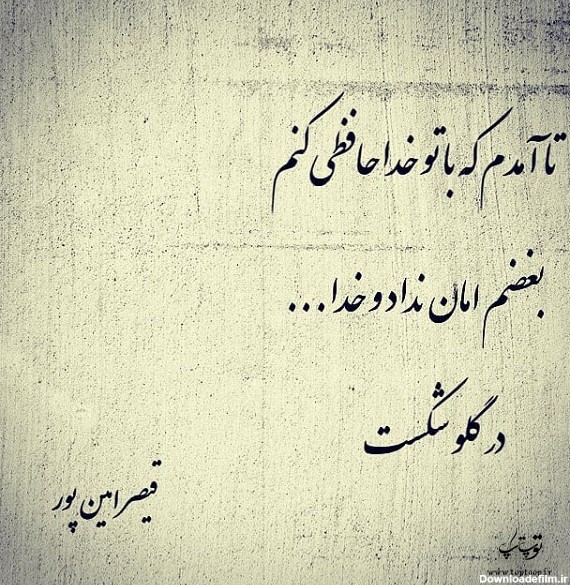 تا آمدم که با تو خداحافظی کنم
بغضم امان نداد و خدا...
در گلو شکست
قیصر امین پور
www.toptoop.ir
Downloadefilm.ir